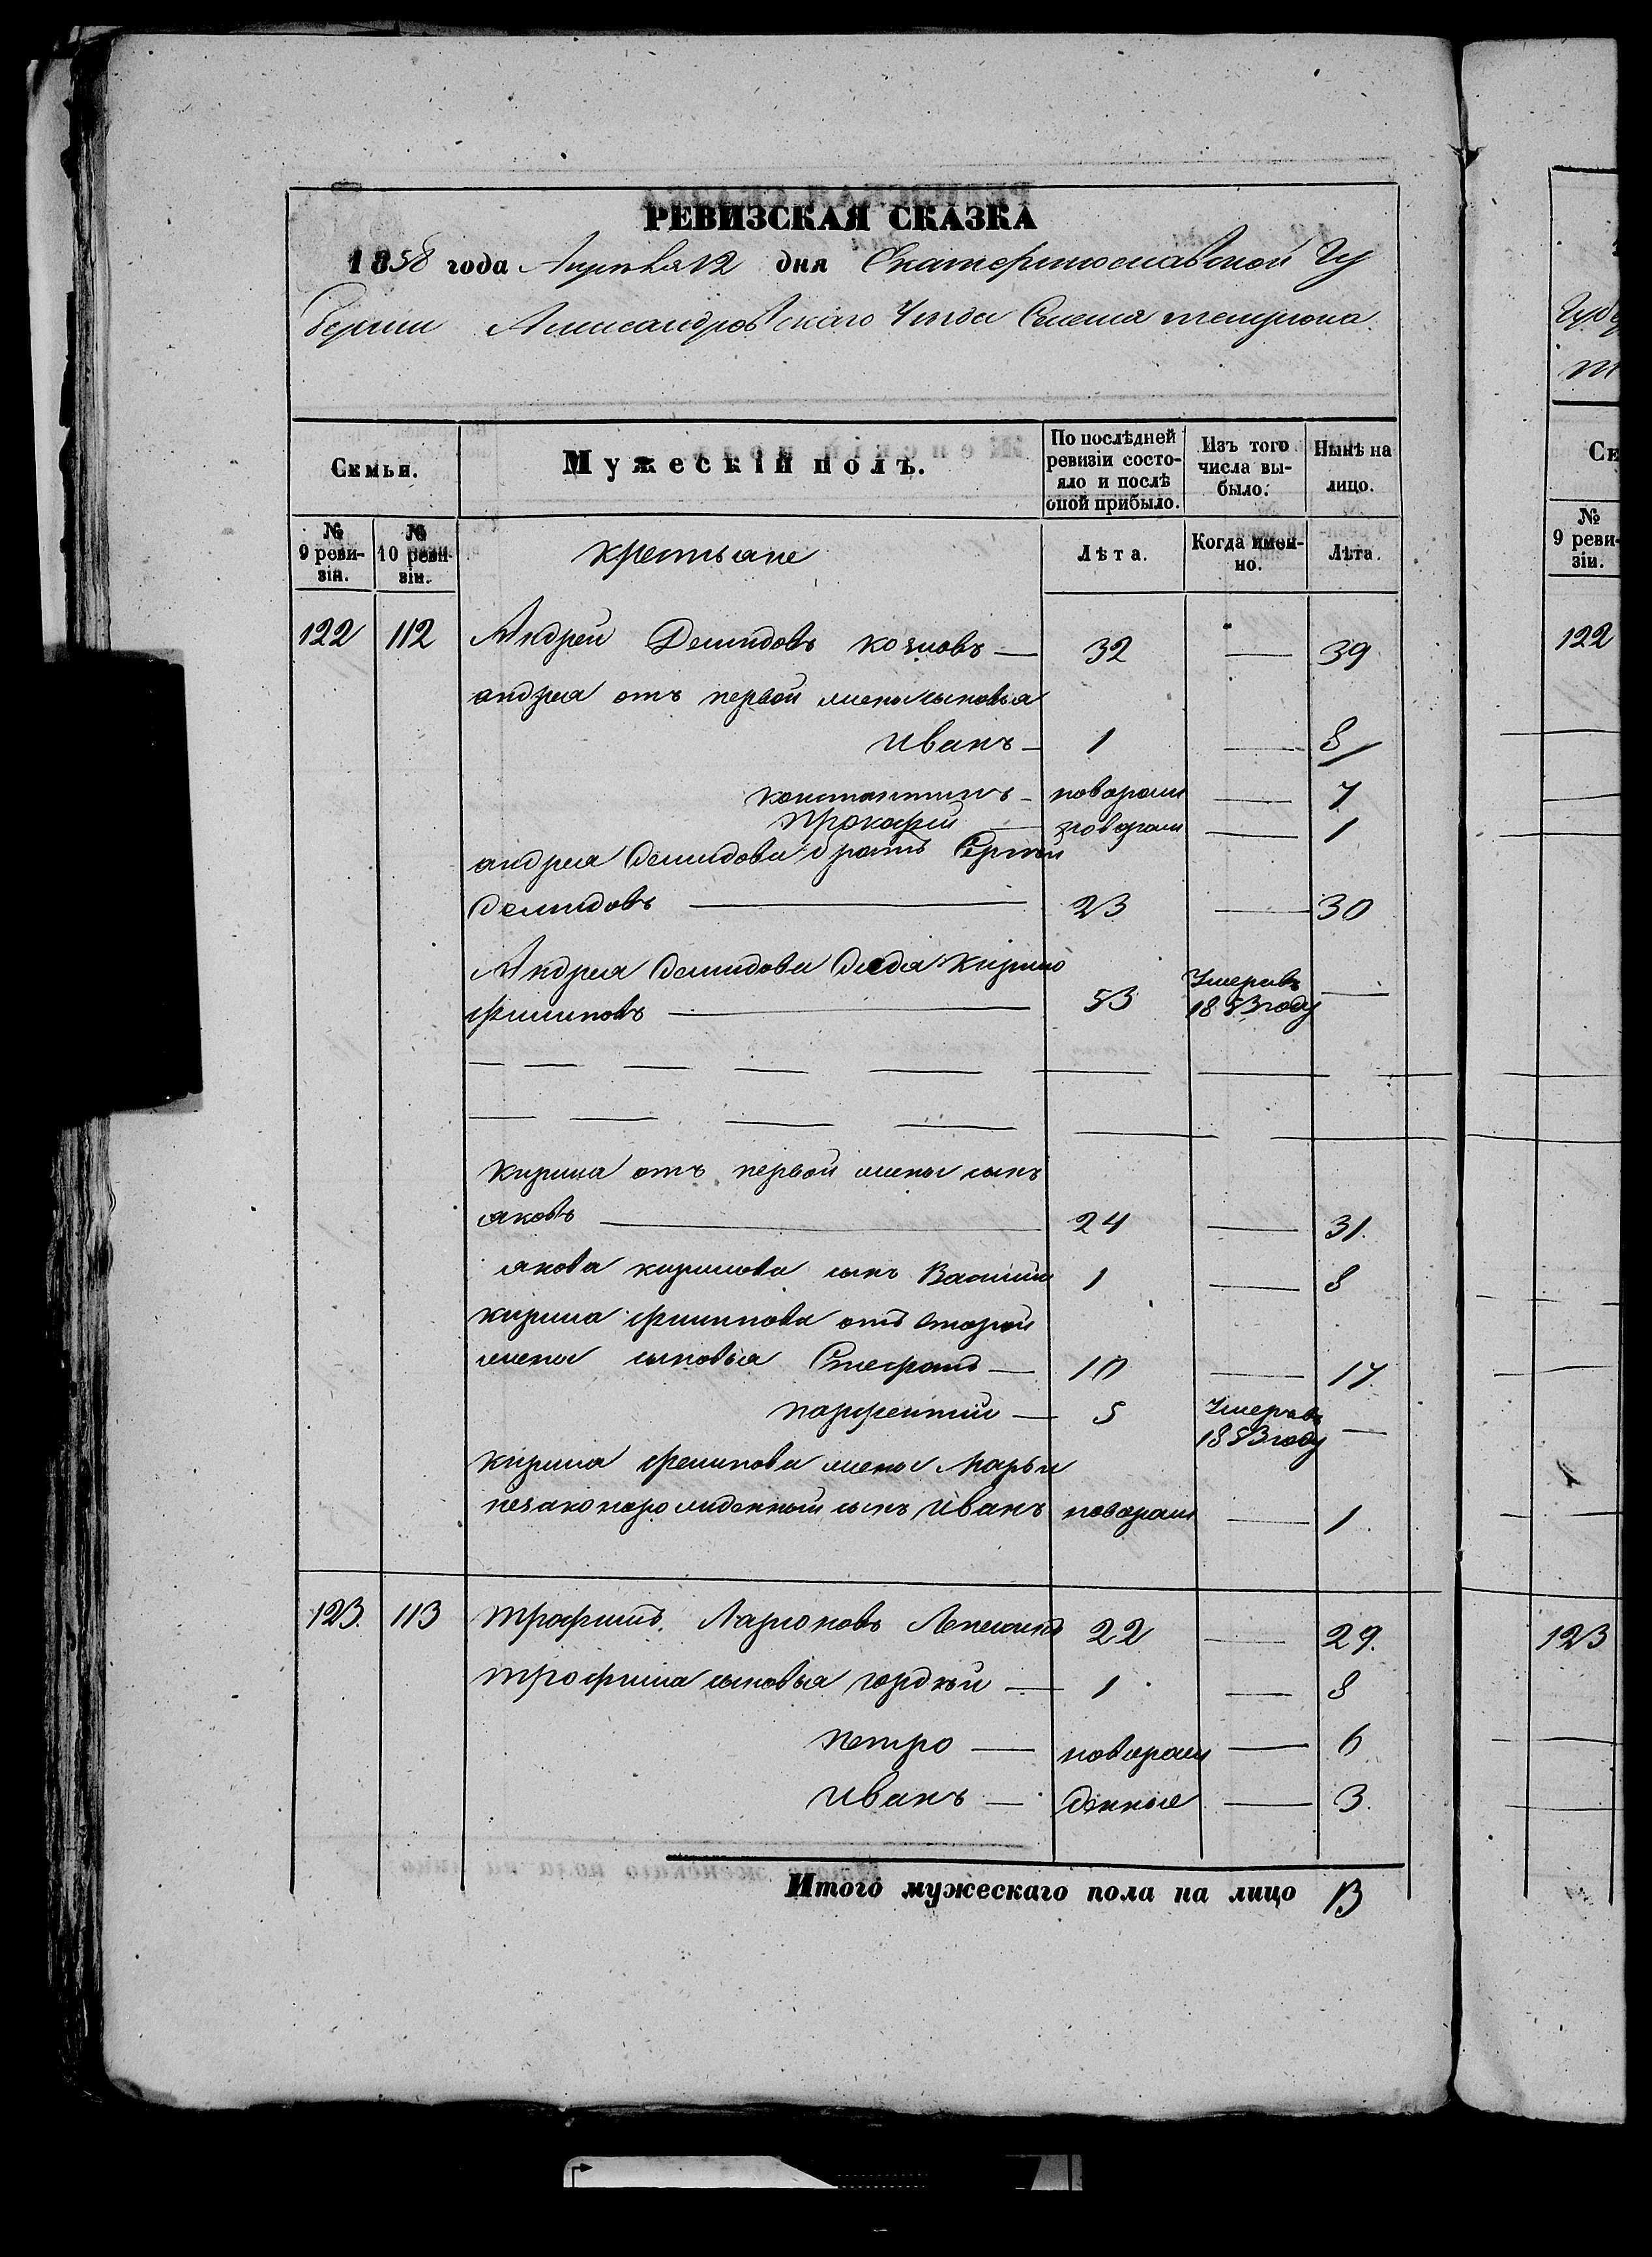 РЕВИЗСКАЯ СКАЗКА
1858 года Апреля 12 дня Екатеринославской Гу
бернии Александровскаго Уезда Селения темрюка.
Семьи.
Мужескій полъ.
По послѣдней ревизіи состояло и послѣ оной прибыло.
Изъ того числа выбыло.
Нынѣ на лицо.
№ 9 ревизіи.
№ 10 ревизіи.
крестьяне
Лѣта.
Когда именно.
Лѣта.
122 112 Андрей Демидовъ козловъ — 32 — 39
андрея отъ первой жены сыновья
Иванъ — 1 — 8
константинъ — новорож — 7
Прокофий — новорож — 1
андрея Демидова братъ Сергѣй
Демидовъ — 23 — 30
Андрея Демидова дядя Кирило
филиповъ — 53 Умеръ въ 1853 году —
кирила отъ первой жены сынъ
яковъ — 24 — 31.
якова кирилова сынъ Василий 1 — 8
кирила филипова отъ второй
жены сыновья Стефанъ — 10 — 17.
парфентий — 5 Умеръ въ 1853 году —
кирила филипова жены Марьи
незаконорожденный сынъ Иванъ новорож — 1.
123. 113 трофимъ Ларионовъ 22 — 29.
трофима сыновья гордѣй — 1 — 8
петро — новорож — 6
Иванъ — денные — 3.
Итого мужескаго пола на лицо 13
Губе
Се
№ 9 ревизіи.
122
123